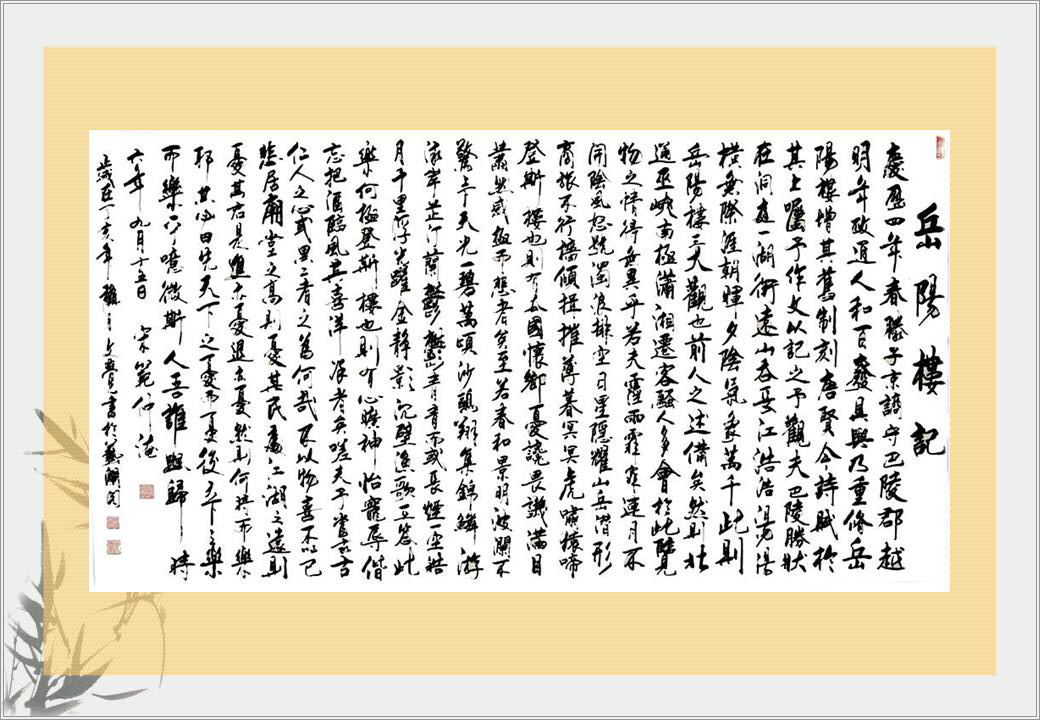 岳陽樓記
慶曆四年春滕子京謫守巴陵郡越
明年政通人和百廢具興乃重脩岳
陽樓增其舊制刻唐賢今詩賦於
其上囑予作文以記之予觀夫巴陵勝狀
在洞庭一湖銜遠山吞長江浩浩湯湯
橫無際涯朝暉夕陰氣象萬千此則
岳陽樓之大觀也前人之述備矣然則北
通巫峽南極瀟湘遷客騷人多會於此覽
物之情得無異乎若夫霪雨霏霏連月不
開陰風怒號濁浪排空日星隱耀山岳潛形
商旅不行檣傾楫摧薄暮冥冥虎嘯猿啼
登斯樓也則有去國懷鄉憂讒畏譏滿目
蕭然感極而悲者矣至若春和景明波瀾不
驚上下天光一碧萬頃沙鷗翔集錦鱗游
泳岸芷汀蘭鬱鬱青青而或長煙一空皓
月千里浮光躍金靜影沉璧漁歌互答此
樂何極登斯樓也則有心曠神怡寵辱偕
忘把酒臨風其喜洋洋者矣嗟夫予嘗求古
仁人之心或異二者之為何哉不以物喜不以己
悲居廟堂之高則憂其民處江湖之遠則
憂其君是進亦憂退亦憂然則何時而樂
耶其必曰先天下之憂而憂後天下之樂
而樂乎噫微斯人吾誰與歸時
六年九月十五日宋範仲淹
歲在丁亥年